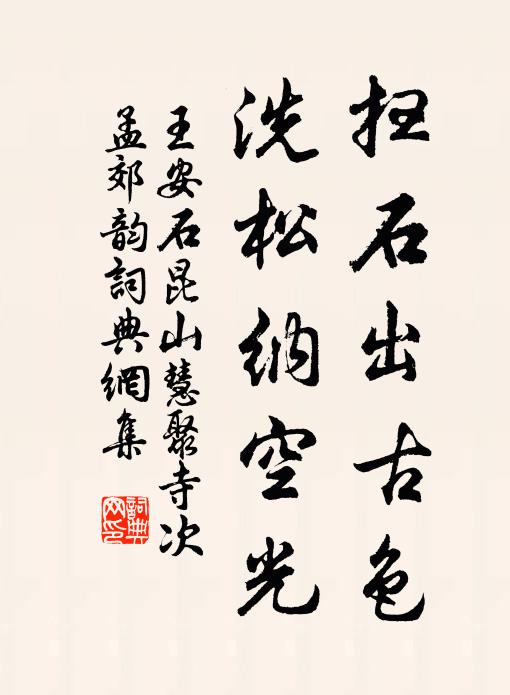 扫石出古色
洗松纳空光
王安石昆山慧聚寺次
孟郊韵詞典網集
詞典
网印